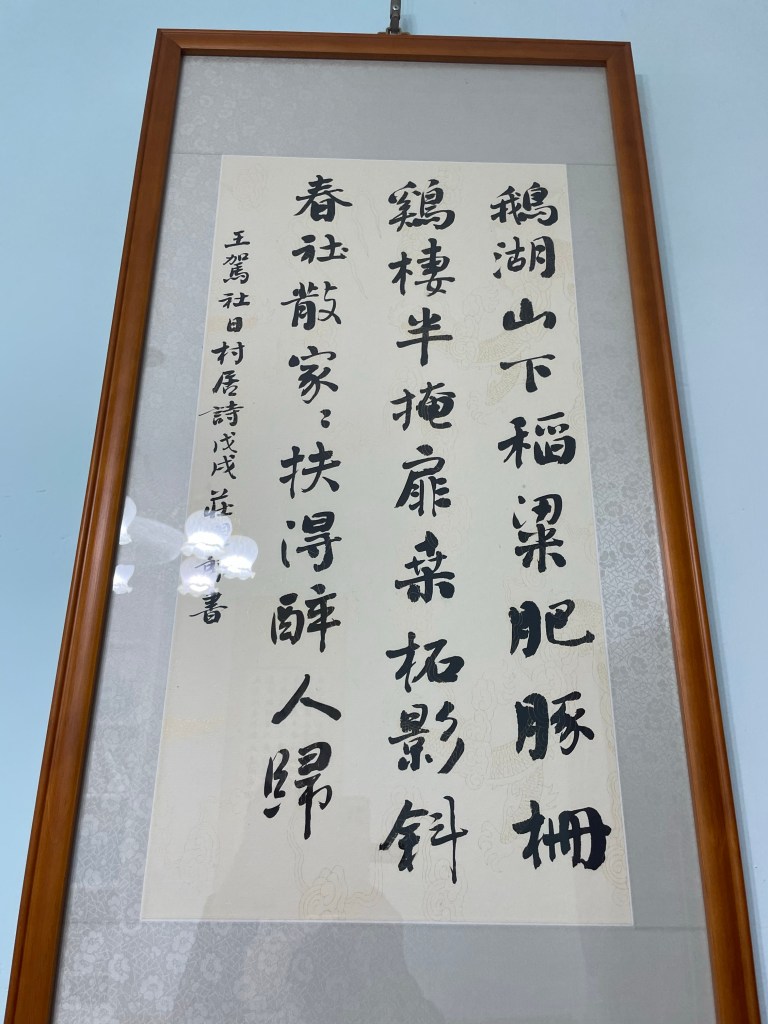 鵝湖山下稻粱肥豚柵
鷄棲半掩扉桑柘影斜
春社散家〻扶得醉人歸
王駕社日村居詩戊戌莊書